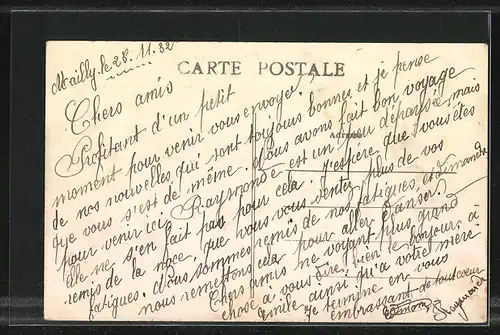 Mailly, le 28.11.32
CARTE POSTALE
Chers amis
Profitant d'un petit
moment pour venir vous envoyer
de nos nouvelles qui sont toujours bonnes et je pense
que vous s'est de même. Nous avons fait bon voyage
pour venir ici. Raymonde est un peu dépaysée, mais
elle ne s'en fait pas pour cela. J'espère que vous êtes
remis de la noce, que vous vous sentez plus de vos
fatigues. Nous sommes remis de nos fatigues, et dimanche
nous remettons cela pour aller danser.
Chers amis ne voyant plus grand
chose à vous dire, bien le bonjour à
Emile ainsi qu'a votre mère
je termine en vous
embrassant de tout coeur